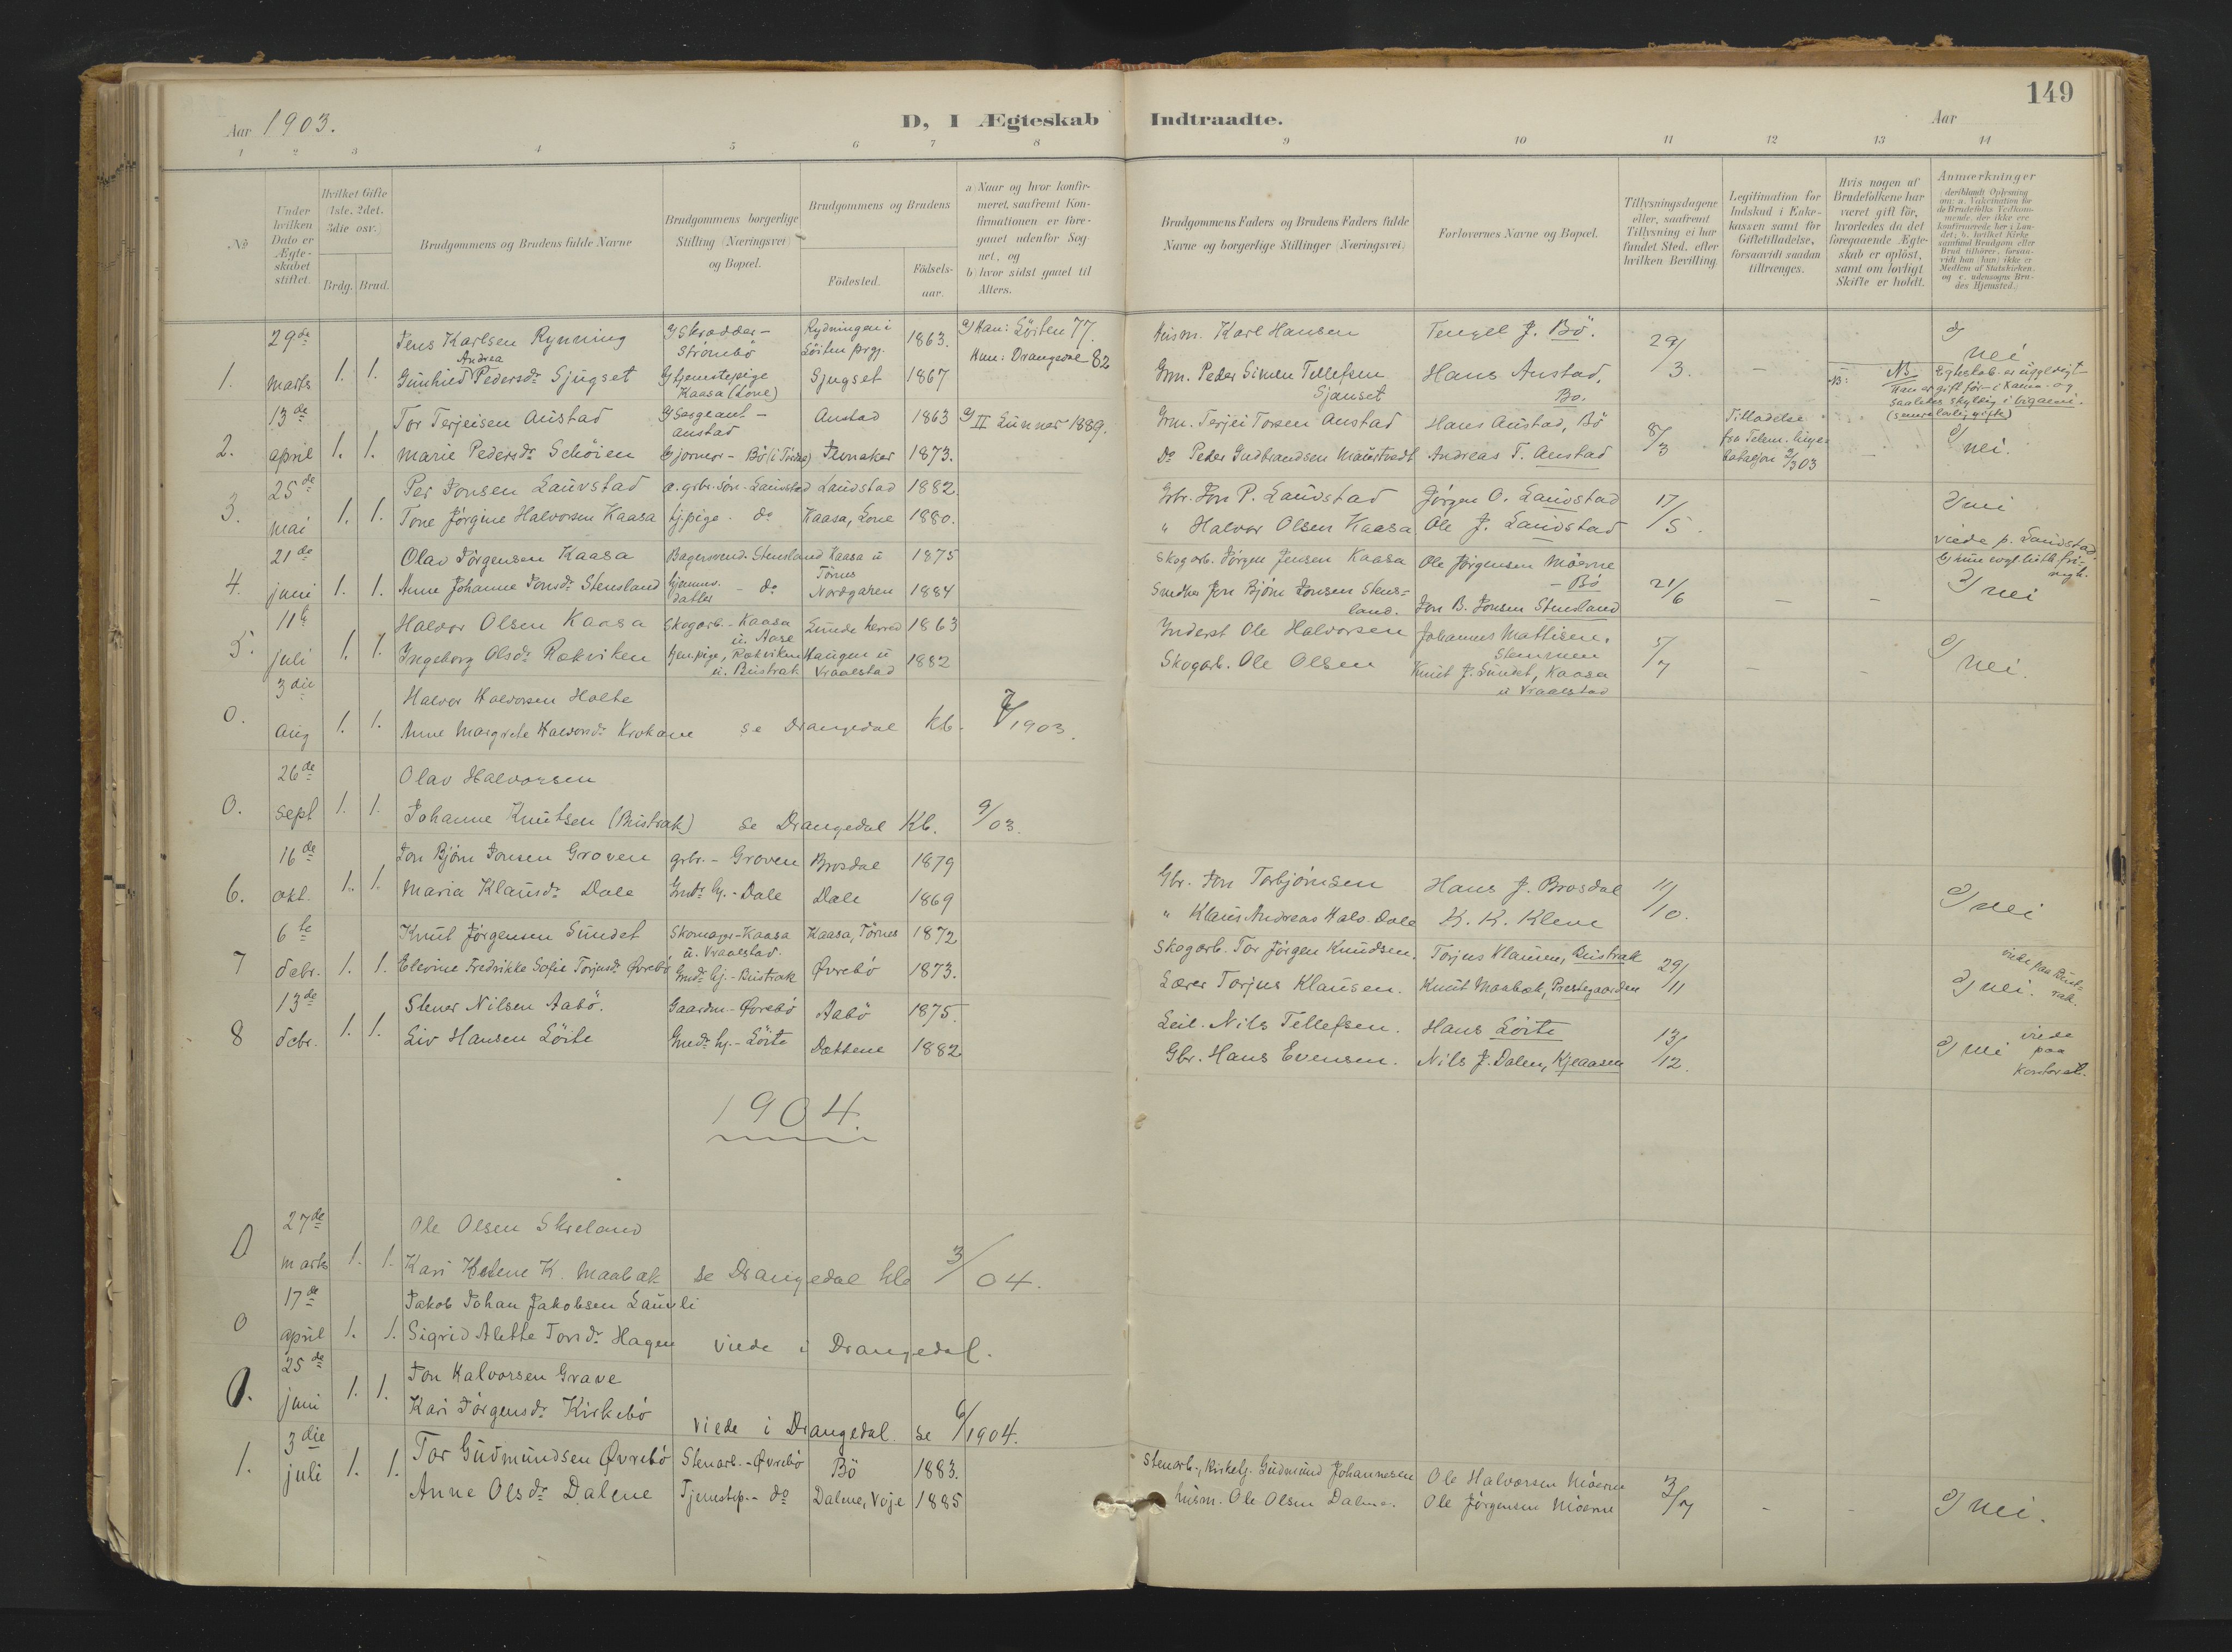 149
Aar 1903.
D, I Ægteskab Indtraadte.
Aar
1 2 3 4 5 6 7 8 9 10 11 12 13 14
No
Under hvilken Dato er Ægteskabet stiftet
Hvilket Gifte (1ste, 2det, 3die osv.)
Brdg. Brud.
Brudgommens og Brudens fulde Navne
Brudgommens borgerlige Stilling (Næringsvei) og Bopæl.
Brudgommens og Brudens
Födested.
Födselsaar.
a) Naar og hvor konfirmeret, saafremt Konfirmationen er foregaaet udenfor Sognet, og
b) hvor sidst gaaet til Alters.
Brudgommens Faders og Brudens Faders fulde Navne og borgerlige Stillinger (Næringsvei)
Forlovernes Navne og Bopæl.
Tillysningsdagene eller, saafremt Tillysning ei har fundet Sted, efter hvilken Bevilling
Legitimation for Indskud i Enkekassen samt for Giftetilladelse, forsaavidt saadan tiltrænges.
Hvis nogen af Brudefolkene har været gift för, hvorledes da det foregaaende Ægteskab er oplöst, samt om lovligt Skifte er holdt.
Anmærkninger
29de Jens Karlsen Rynning Skrædder - Strömbö Rydningen i Löiten prgj. 1863. a) Han: Löiten 77. Husm. Karl Hansen Tengel J. Bö. 29/3. nei
1. marts 1. 1. Gunhild Andrea Pedersdr Sjugset tjenestepige Kaasa (Lone) Sjugset 1867 Hun: Drangedal 82 Grm. Peder Simen Tellefsen Sjauset Hans Austad, Bö. – NB: NB Egteskab er ugyldigt - Han er gift för i Kana. og saaledes skyldig i bigami. (senere lovlig gifte)
13de Tor Terjeisen Austad Sergeant - Austad Austad 1863 II Lunner 1889. Grm. Terjei Torsen Austad Hans Austad, Bö 8/3 Tilladelse fra Telem.
2. april 1. 1. Marie Pedersdr Schöien Gjormor - Bö Jevnaker 1873. Do Peder Gudbrandsen Andreas T. Austad nei.
25de Per Jonsen Lauvstad grbr. sön - Lauvstad Lauvstad 1882 Grbr. Jon P. Lauvstad Jörgen O. Lauvstad 17/5. nei
3. mai 1. 1. Tone Jörgine Halvorsen Kaasa tj.pige - do Kaasa, Lone 1880. " Halvor Olsen Kaasa Ole J. Lauvstad viede p. Lauvstad.
21de Olav Jörgensen Kaasa Bagersvend. Stensland Kaasa u Törnes 1875 Skogarb. Jörgen Jensen Kaasa Ole Jörgensen Möerne - Bö 21/6
4. juni 1. 1. Anne Johanne Jonsdr Stensland hjemmev. datter - do Nordgaren 1884 Smedker Jon Björn Jonsen Stensland. Jon B. Jonsen Stensland – – nei
11te Halvor Olsen Kaasa Skogarb. - Kaasa u. Aase Lunde herred 1863 Inderst Ole Halvorsen Johannes Mattisen, Stemmen 5/7
5. juli 1. 1. Ingeborg Olsdr Rökviken tjen.pige, Rökviken u. Bustrak Haugen u Vraalstad 1882 Skogarb. Ole Olsen Knut J. Sundet, Kaasa u Vraalstad – nei.
3die Halvor Halvorsen Holte
0. aug 1. 1. Anne Margrete Halvorsdr Krokane se Drangedal kb. 1903.
26de Olav Halvorsen
0. sept 1. 1. Johanne Knutsen (Bustrak) se Drangedal Kb. 9/03.
16de Jon Björn Jonsen Groven grbr. - Groven Brosdal 1879 Gbr. Jon Torbjörnsen Hans J. Brosdal 11/10.
6. okt. 1. 1. Maria Klausdr Dale Gmdr hj. - Dale Dale 1869 " Klaus Andreas Halv. Dale K. K. Kleve nei
6te Knut Jörgensen Sundet Skomager - Kaasa u. Vraalstad. Kaasa, Törnes 1872 Skogarb. Tor Jörgen Knudsen. Torjus Klausen, Bustrak 29/11
7 debr. 1. 1. Elevine Fredrikke Sofie Torjusdr Øvrebö Gmdr hj. - Bustrak Øvrebö 1873. Lærer Torjus Klausen. Knut Maabæk, Prestegaarden nei. viede paa Bustrak.
13de Stener Nilsen Aabö. Gaardm - Øvrebö Aabö 1875. Leil. Nils Tellefsen. Hans Löite 13/12.
8 debr. 1. 1. Liv Hansen Löite Gmdr hj. - Löite Dættene 1882 Gbr. Hans Evensen. Nils J. Dalen, Kjeaasen nei viede paa kontoret.
1904.
27de Ole Olsen Skreland
0 marts 1. 1. Kari Helene K. Maabæk se Drangedal kb 3/04.
17de Jakob Johan Jakobsen Lauvli
0 april 1. 1. Sigrid Alette Torsdr Hagen viede i Drangedal.
25de Jon Halvorsen Grave
0. juni 1. 1. Kari Jörgensdr Kirkebö viede i Drangedal. se 6/1904.
3die Tor Gudmundsen Øvrebö Stenarb. - Øvrebö Bö 1883. Stenarb., Kirketj. Gudmund Johannesen Ole Halvorsen Möerne 3/7
1. juli 1. 1. Anne Olsdr Dalene Tjenestep. - do Dalene, Voje 1885 husm. Ole Olsen Dalene. Ole Jörgensen Möerne – – nei.